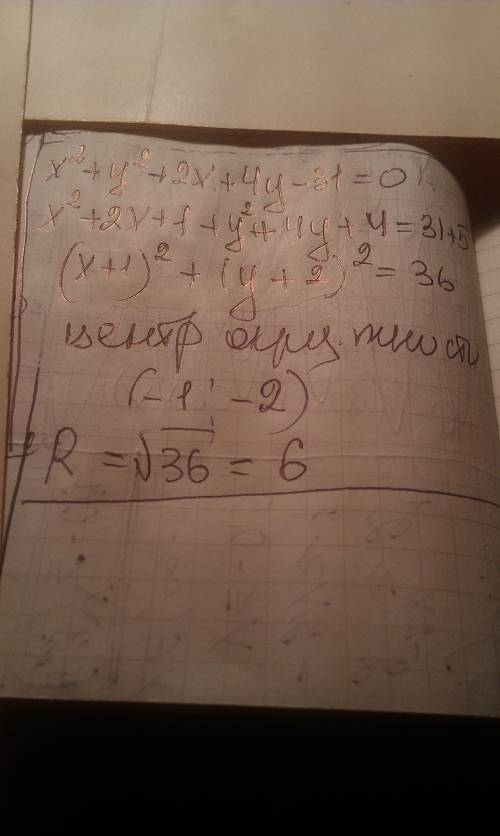 x²+y²+2x+4y-31=0
x²+2x+1+y²+4y+4=31+5
(x+1)²+(y+2)²=36
центр окружности
(-1; -2)
R=√36=6